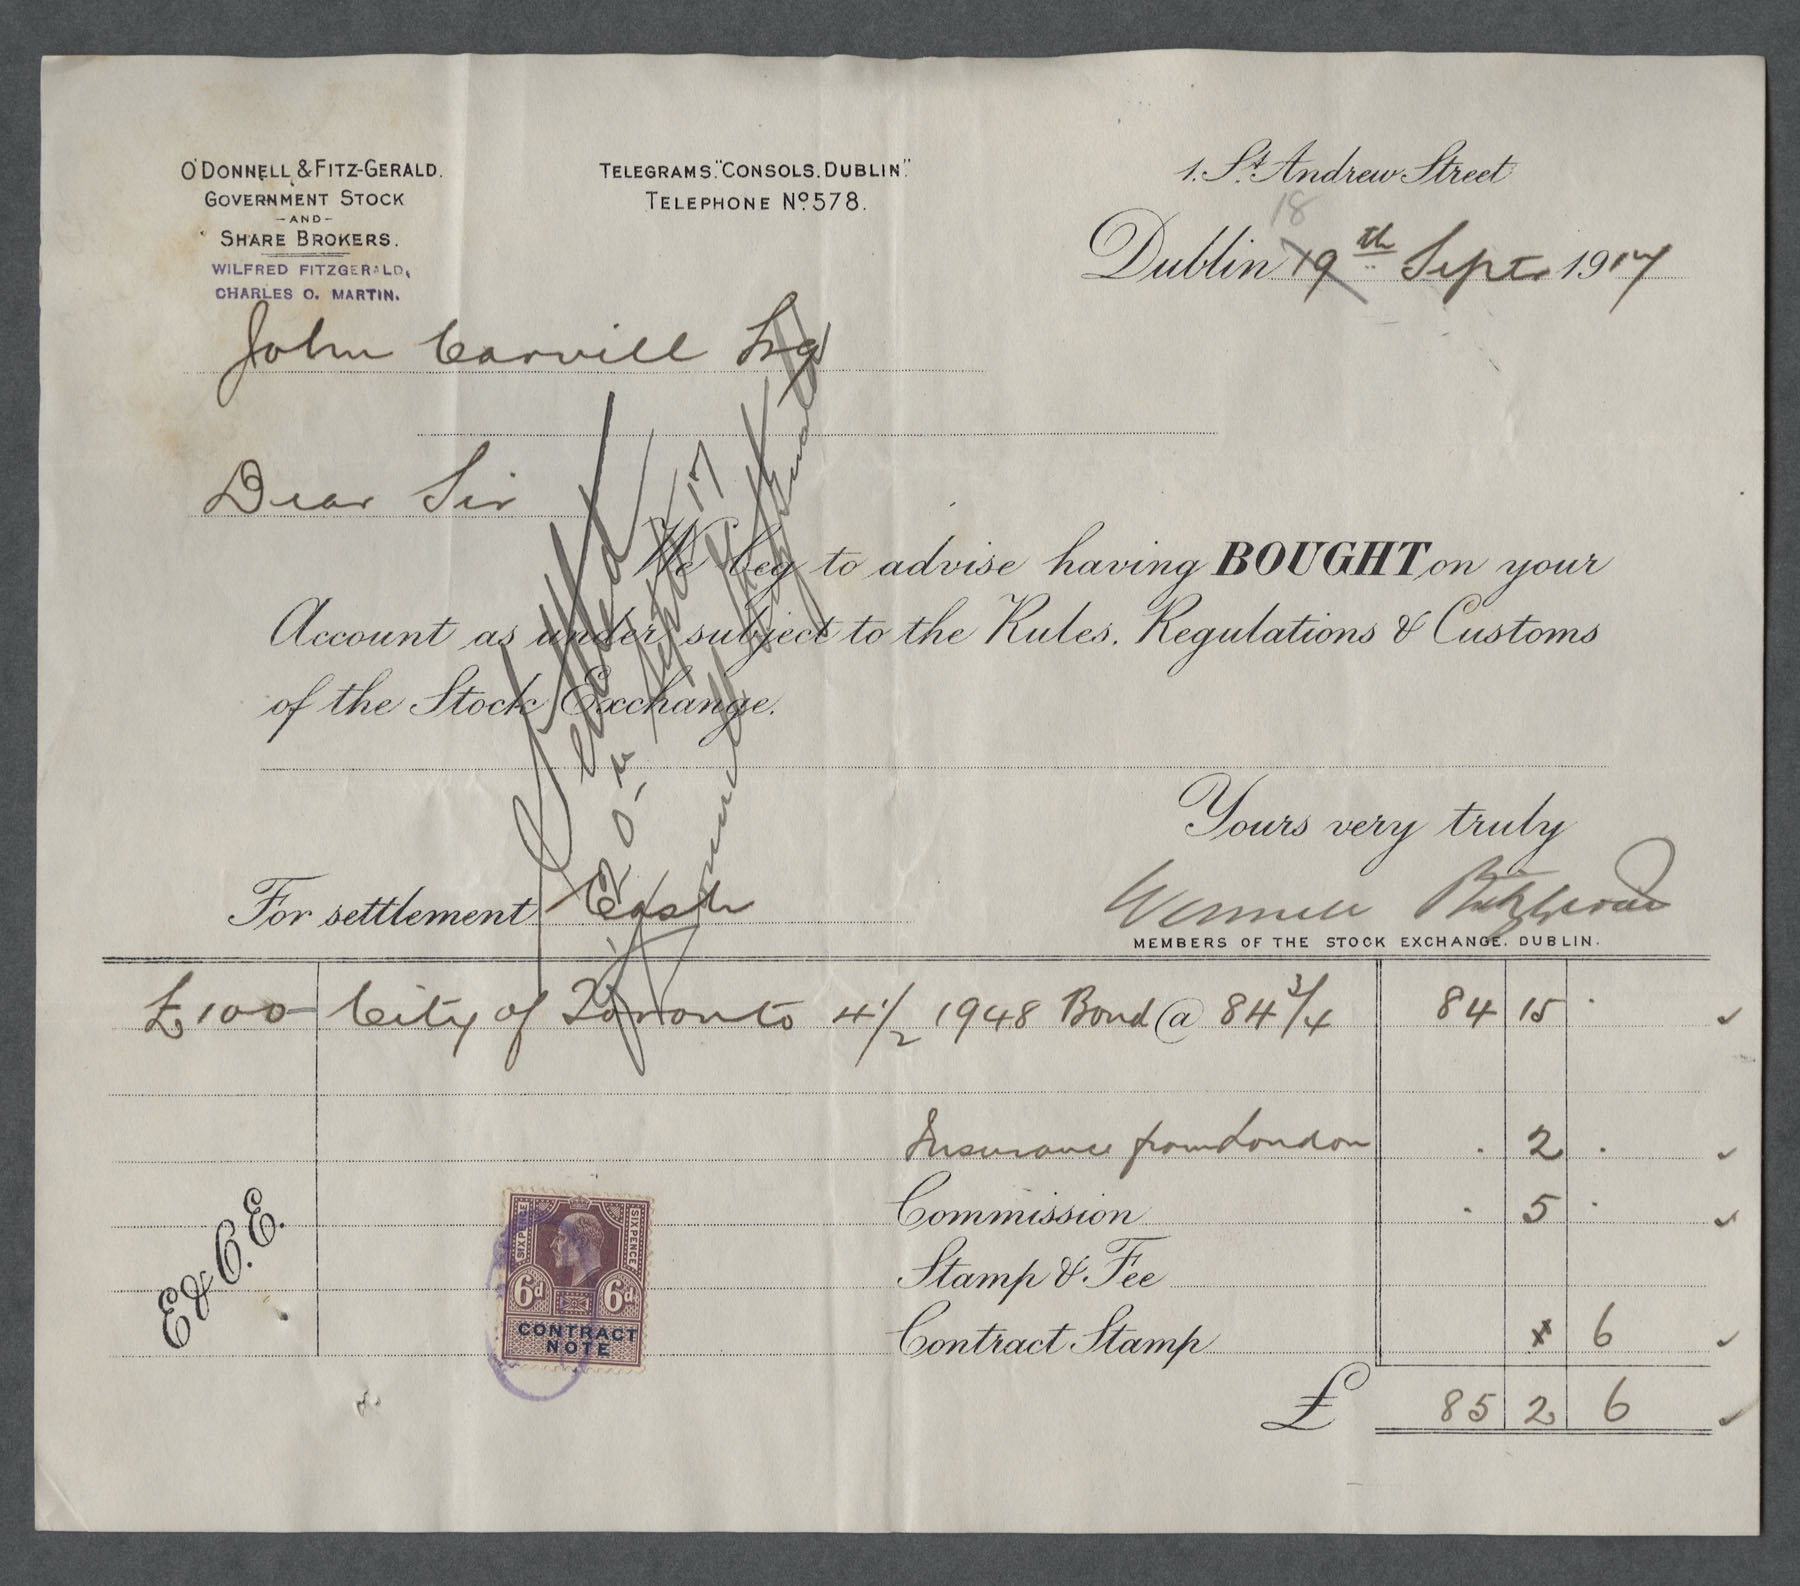 O'DONNELL & FITZ-GERALD.
GOVERNMENT STOCK
-AND-
SHARE BROKERS.
WILFRED FITZGERALD,
CHARLES O. MARTIN.
TELEGRAMS. "CONSOLS. DUBLIN".
TELEPHONE Nº 578.
1. St. Andrew Street
18
Dublin 19th Sept 1917
John Carvill Esq
Dear Sir
We beg to advise having BOUGHT on your
Account as under, subject to the Rules, Regulations & Customs
of the Stock Exchange.
Yours very truly
MEMBERS OF THE STOCK EXCHANGE, DUBLIN.
For settlement Cash
Settled
Sept 17
£100 City of Toronto 4½ 1948 Bond @ 84¾ 84 15 .
Insurance from London . 2 .
Commission . 5 .
Stamp & Fee
Contract Stamp 6
£ 85 2 6
E & O. E.
SIXPENCE
SIXPENCE
6d 6d
CONTRACT
NOTE